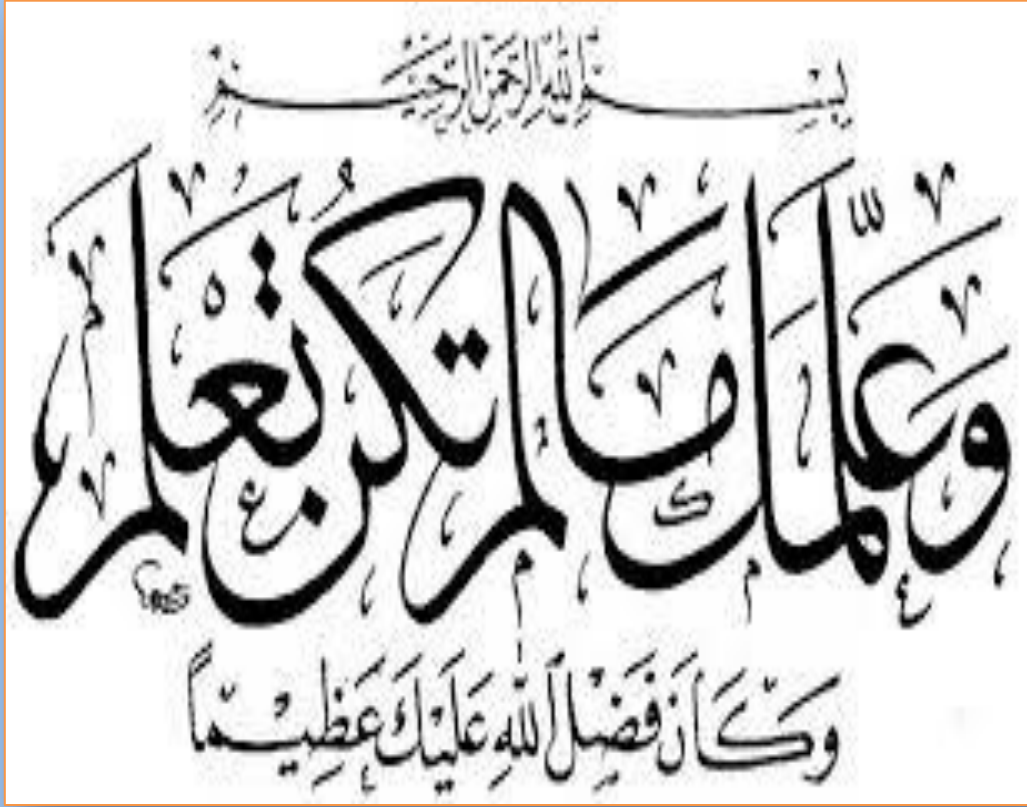 بِسْمِ اللهِ الرَّحْمٰنِ الرَّحِيْمِ
وَعَلَّمَكَ مَا لَمْ تَكُنْ تَعْلَمُ
وَكَانَ فَضْلُ اللّٰهِ عَلَيْكَ عَظِيْمًا